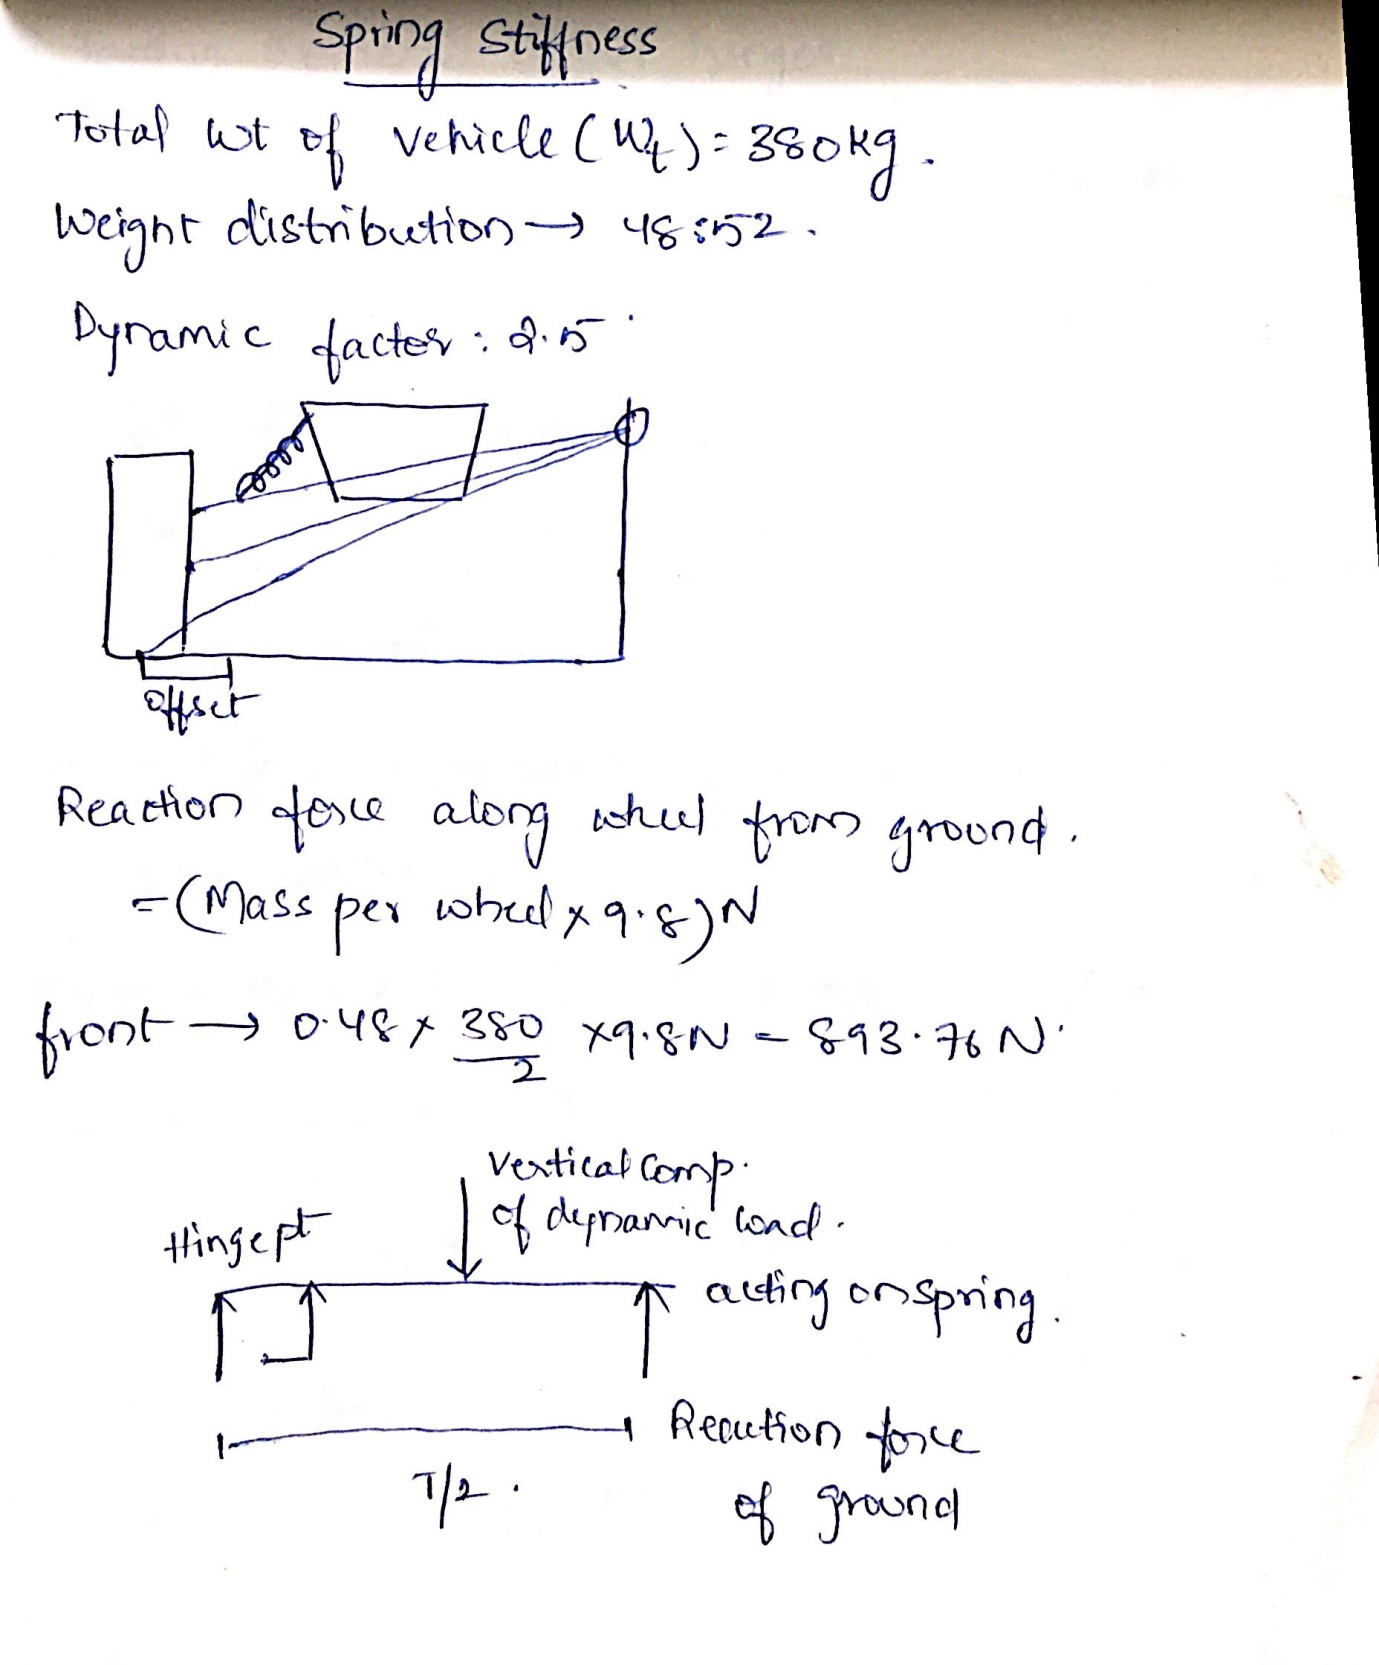 Spring Stiffness
Total wt of vehicle (Wt) = 380kg.
Weight distribution → 48:52.
Dynamic factor : 2.5
offset
Reaction force along wheel from ground.
= (Mass per wheel x 9.8) N
front → 0.48 x 380/2 x 9.8N = 893.76 N.
Vertical Comp.
of dynamic load.
Hinge pt
acting on spring.
T/2.
Reaction force
of ground